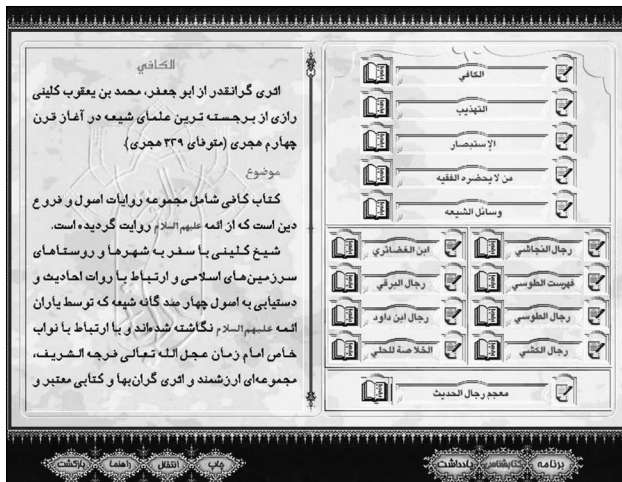 الكافي
التهذيب
الإستبصار
من لا يحضره الفقيه
وسائل الشيعه
رجال النجاشي
ابن الغضائري
فهرست الطوسي
رجال البرقي
رجال الطوسي
رجال ابن داود
رجال الكشي
الخلاصة للحلي
معجم رجال الحديث
الكافي
اثری گرانقدر از ابو جعفر، محمد بن یعقوب کلینی
رازی از برجسته ترین علمای شیعه در آغاز قرن
چهارم هجری (متوفای ۳۲۹ هجری).
موضوع
کتاب کافی شامل مجموعه روایات اصول و فروع
دین است که از ائمه علیهم السلام روایت گردیده است.
شیخ کلینی با سفر به شهرها و روستاهای
سرزمین‌های اسلامی و ارتباط با روات احادیث و
دستیابی به اصول چهار صد گانه شیعه که توسط یاران
ائمه علیهم السلام نگاشته شده‌اند و با ارتباط با نواب
خاص امام زمان عجل الله تعالی فرجه الشریف،
مجموعه‌ای ارزشمند و اثری گران‌بها و کتابی معتبر و
برنامه
کتابشناسی
یادداشت
چاپ
انتقال
راهنما
بازگشت